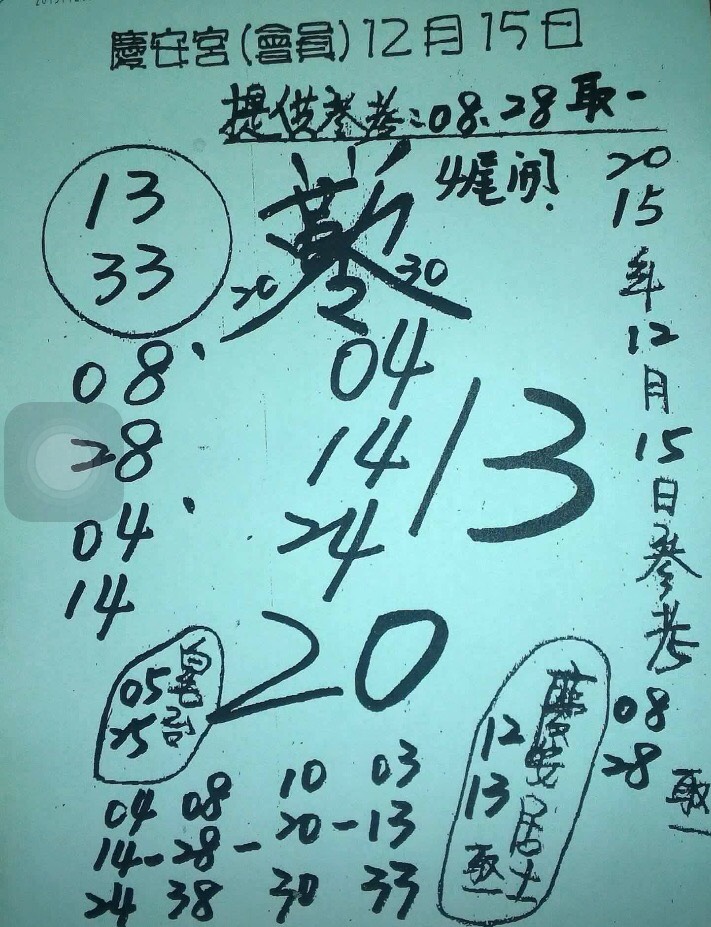 慶安宮(會員)12月15日
提供参考:08、28取一
4尾開!
13
33
20 30
2
08
28
04
14
04
14
24
13
20
20
15
年
12
月
15
日
參
考
08
28
取一
05
25
04 08 10 03
14-28-20-13
24 38 30 33
慶安居士
12
13
取一